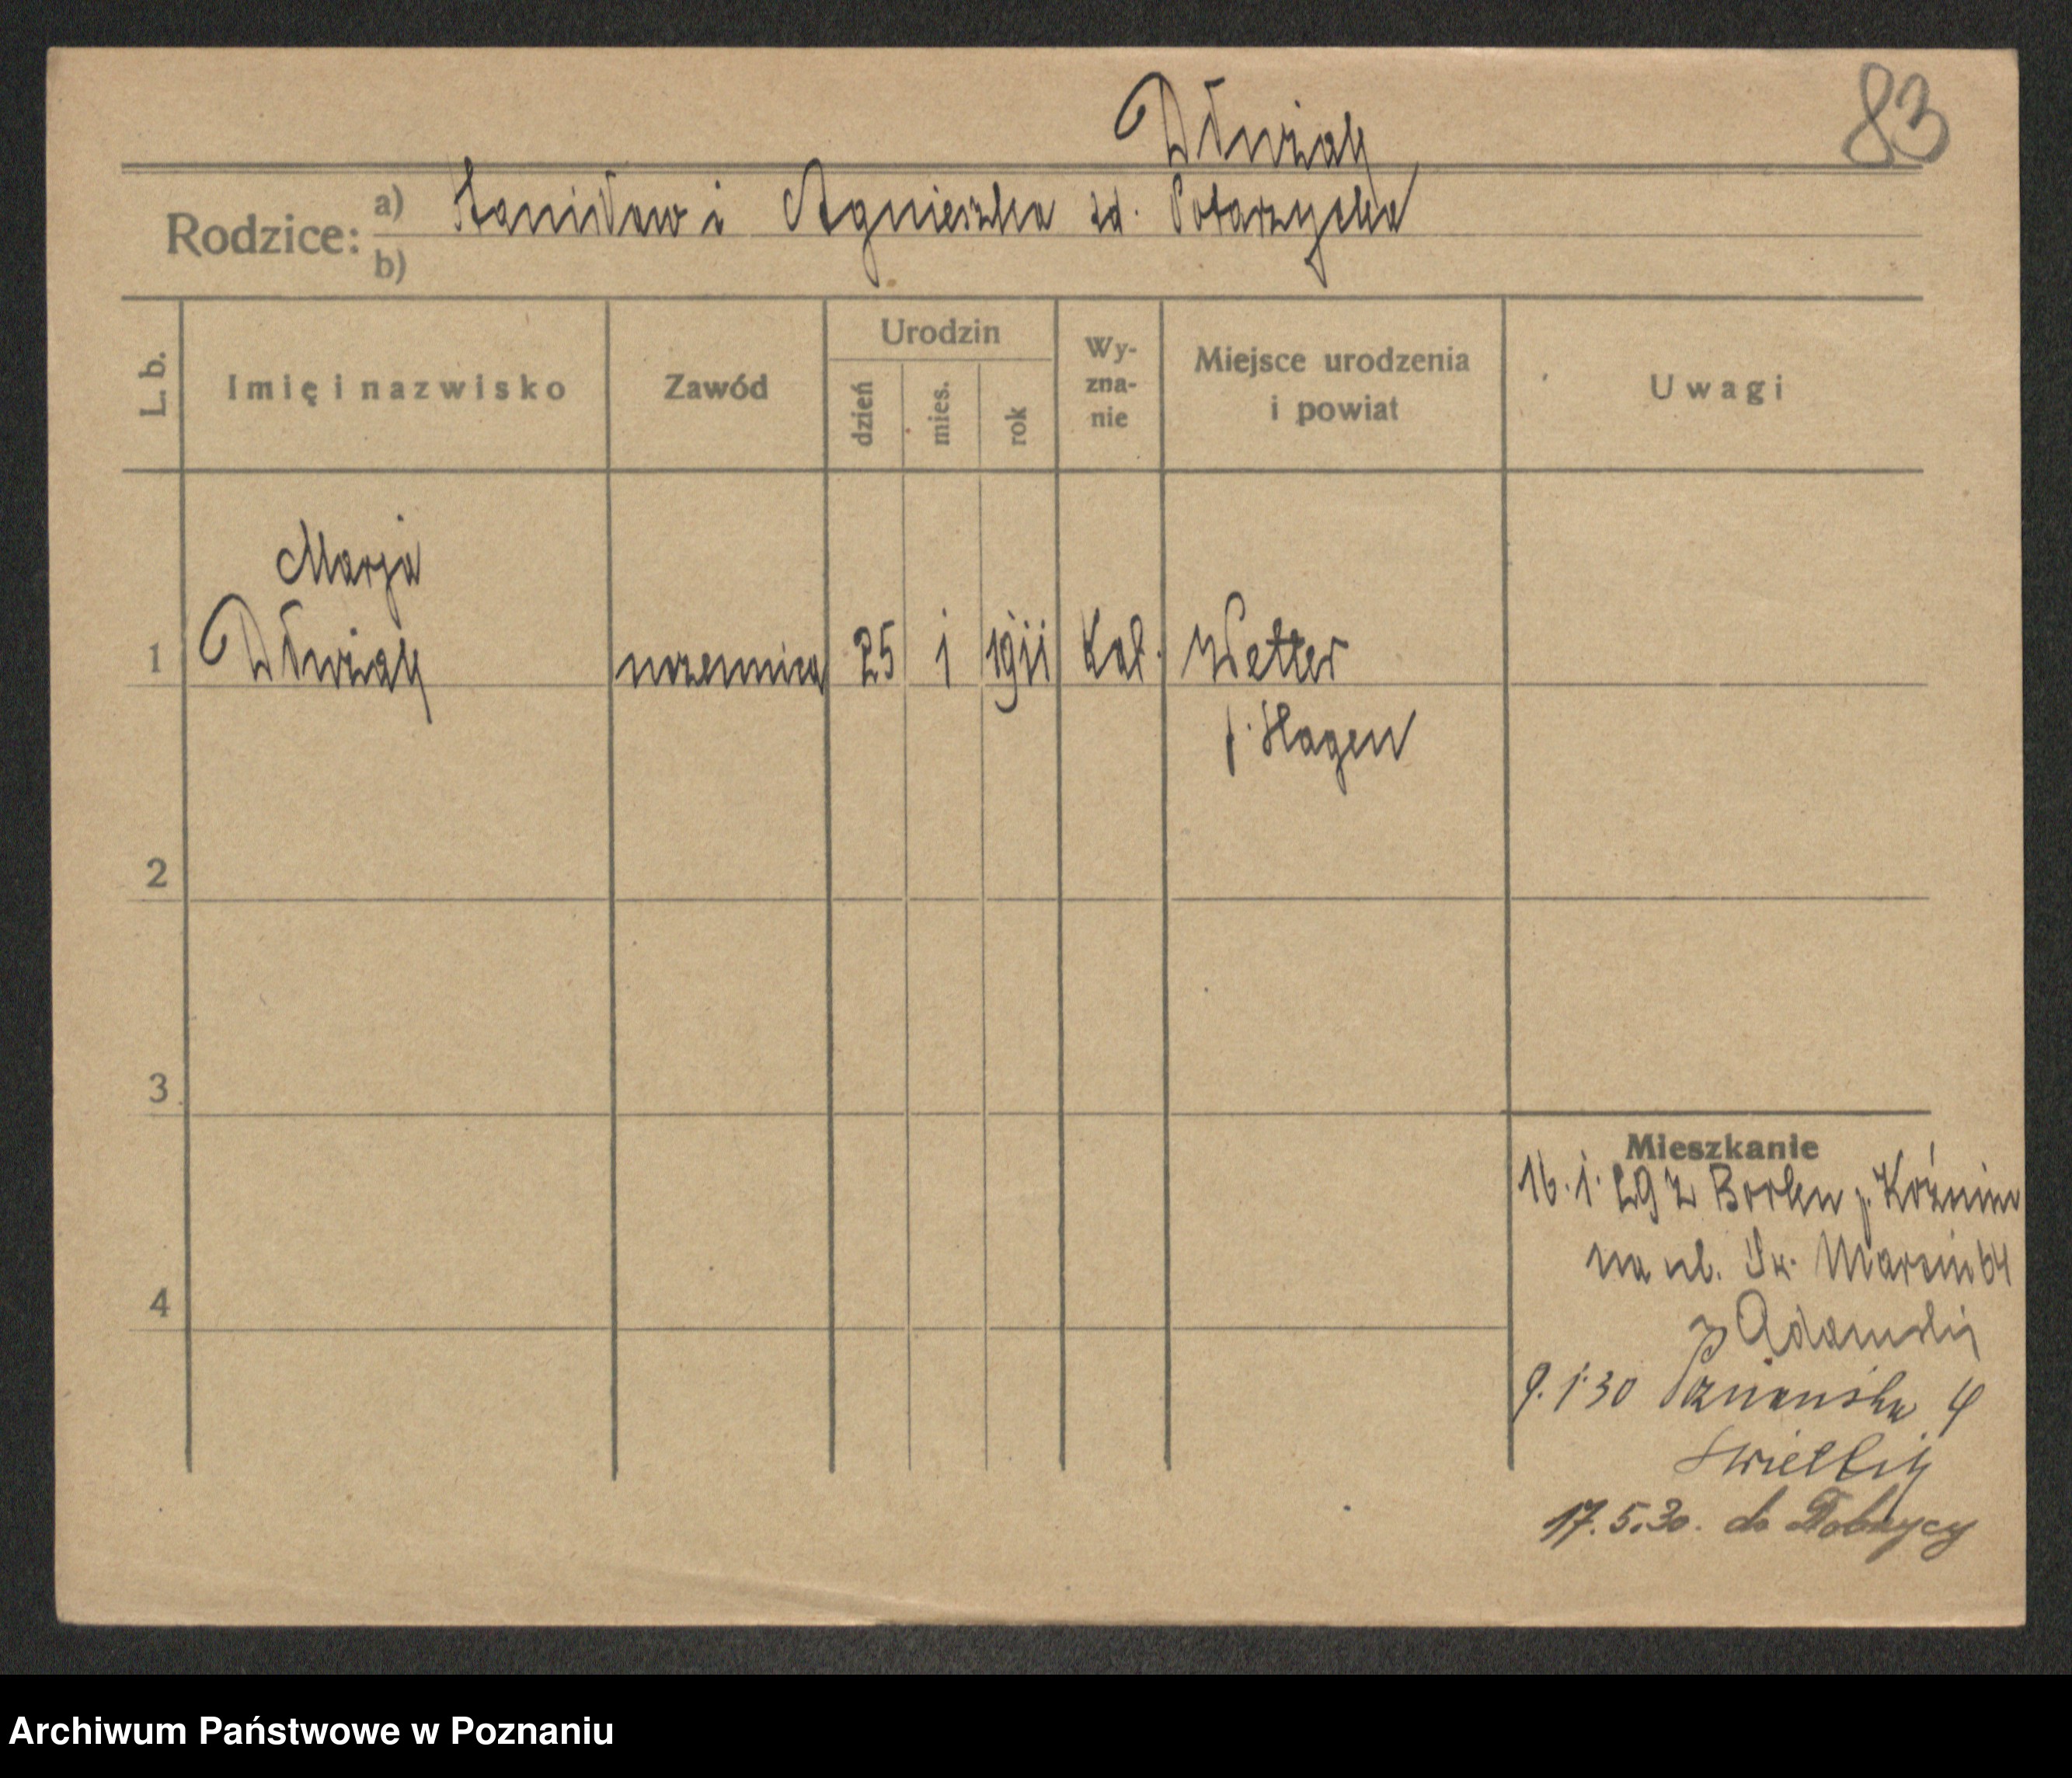 83
Dłużak
Rodzice: a) Stanisław i Agnieszka zd. Potarzycka
b)
L. b. Imię i nazwisko Zawód Urodzin dzień mies. rok Wyznanie Miejsce urodzenia i powiat Uwagi
Marja
1 25 1 1911 Kat. Wetter
p. Hagen
2
3
Mieszkanie
16. 1. 29 z p. Koźmin
na ul. Św. Marcin 64
4
p Adamski
9. 1 30 4
17. 5. 30. do Dobrzycy
Archiwum Państwowe w Poznaniu